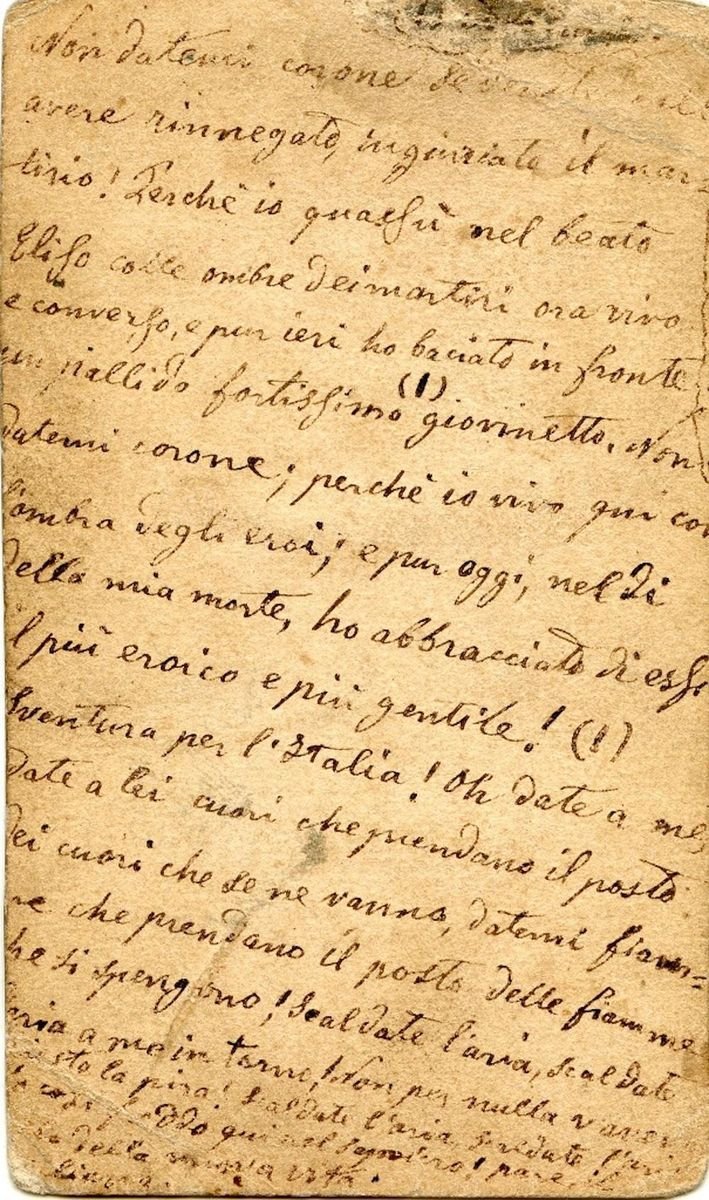 Non datemi corone se
avere rinnegato, ingiuriato il mar=
tirio! Perchè io quassù nel beato
Eliso colle ombre dei martiri ora vivo
e converso, e pur ieri ho baciato in fronte
un pallido fortissimo (1) giovinetto. Non
datemi corone; perchè io vivo qui con
l'ombra degli eroi; e pur oggi, nel dì
della mia morte, ho abbracciato di essi
l più eroico e più gentile! (1)
Sventura per l'Italia! Oh date a me,
date a lei cuori che prendano il posto
dei cuori che se ne vanno, datemi fiam=
me che prendano il posto delle fiamme
che si spengono! Scaldate l'aria, scaldate
l'aria a me intorno! Non per nulla v'avevo
la pira! Scaldate l'aria, scaldate l'aria
freddo qui nel! pare il
della vita.